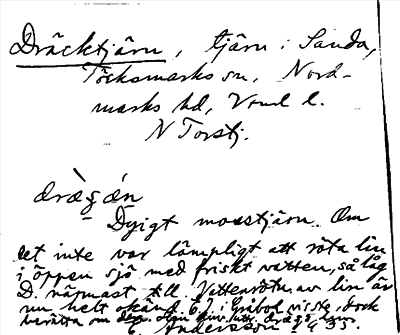 Dräcktjärn, tjärn i Sanda,
Töcksmarks sn, Nord-
marks hd, Vrml l.
N Torstj.
dræ̀gǽn
Dyigt mosstjärn. Om
det inte var lämpligt att röta lin
i öppen sjö med friskt vatten, så låg
D. närmast till. Vattenrötn. av lin är
nu helt okänd. E J i visste, dock
berätta om den
E. Andersson 1935.